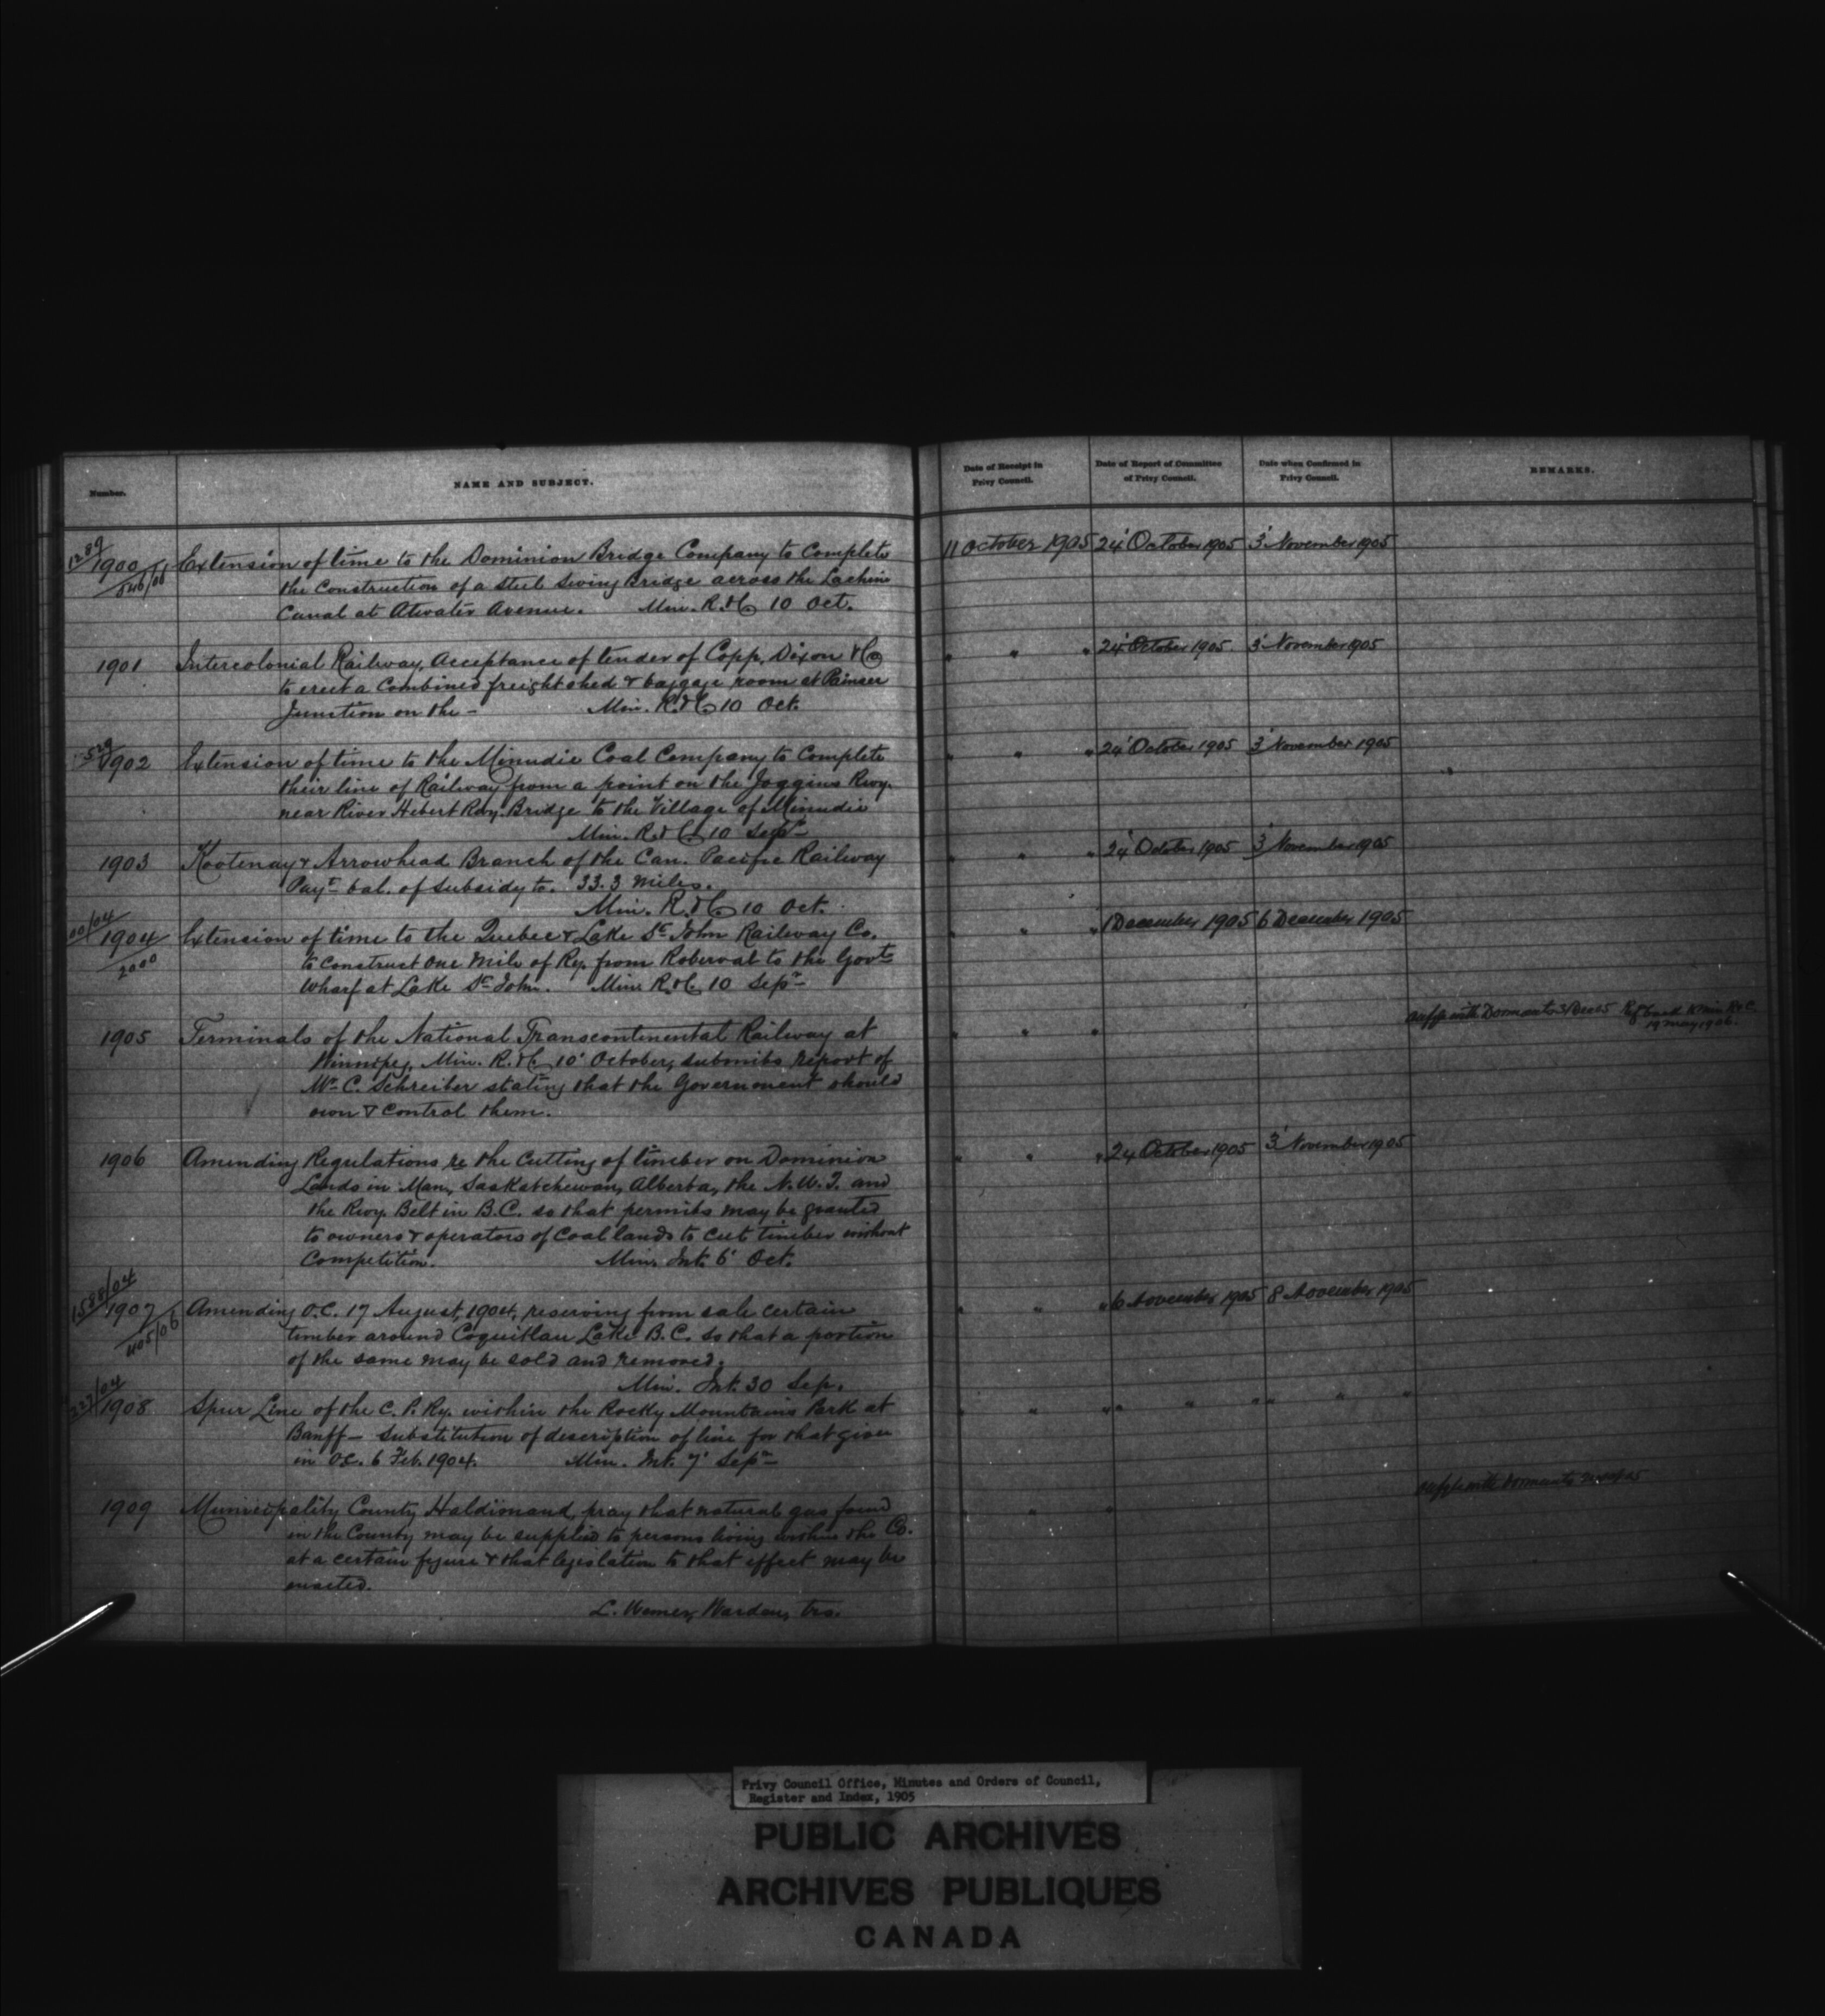 Number.
NAME AND SUBJECT.
Date of Receipt in
Privy Council.
Date of Report of Committee
of Privy Council.
Date when Confirmed in
Privy Council.
REMARKS.
1289
1900 Extension of time to the Dominion Bridge Company to Complete 11 October 1905 24' October 1905 3' November 1905
the Construction of a steel Swing Bridge across the Lachine
Canal at Atwater Avenue. Min. R. & C 10 Oct.
1901 Intercolonial Railway, Acceptance of tender of Copp, Dixon & Co " " " 24' October 1905 3' November 1905
to erect a Combined freight shed & baggage room at Painsec
Junction on the - Min. R. & C 10 Oct.
1902 Extension of time to the Minudie Coal Company to Complete " " " 24' October 1905 3' November 1905
their line of Railway from a point on the Joggins Rwy.
near River Hebert Rwy. Bridge to the Village of Minudie
Min. R. & C 10 Sepr
1903 Kootenay & Arrowhead Branch of the Can. Pacific Railway " " " 24' October 1905 3' November 1905
Payt bal. of subsidy to. 33.3 miles.
Min. R. & C 10 Oct.
1904 Extension of time to the Quebec & Lake St John Railway Co. " " " 1 December 1905 6 December 1905
2000
to Construct One Mile of Ry. from Roberval to the Govt
Wharf at Lake St John. Min. R. & C. 10 Sepr
1905 Terminals of the National Transcontinental Railway at " " "
Winnipeg. Min. R. & C 10' October, submits report of
Mr C. Schreiber stating that the Government should
own & control them.
with Dormants
19 May 1906.
1906 Amending Regulations re the Cutting of timber on Dominion " " " 24 October 1905 3' November 1905
Lands in Man, Saskatchewan, Alberta, the N.W.T. and
the Rwy. Belt in B.C. so that permits may be granted
to owners & operators of Coal lands to cut timber without
Competition. Min. Int. 6' Oct.
1588/04
1907 Amending O.C. 17 August, 1904, reserving from sale certain " " " 6 November 1905 8 November 1905
405/06
timber around Coquitlau Lake B.C. so that a portion
of the same may be sold and removed.
Min. Int. 30 Sep.
1908 Spur Line of the C. P. Ry. within the Rocky Mountains Park at " " " " " " " "
Banff - substitution of description of line for that given
in O.C. 6 Feb. 1904. Min. Int. 7' Sepr
1909 Municipality County Haldimand, pray that natural gas found " " "
in the County may be supplied to persons living within the Co.
at a certain figure & that legislation to that effect may be
enacted.
with Dormants
Warden,
Privy Council Office, Minutes and Orders of Council,
Register and Index, 1905
PUBLIC ARCHIVES
ARCHIVES PUBLIQUES
CANADA